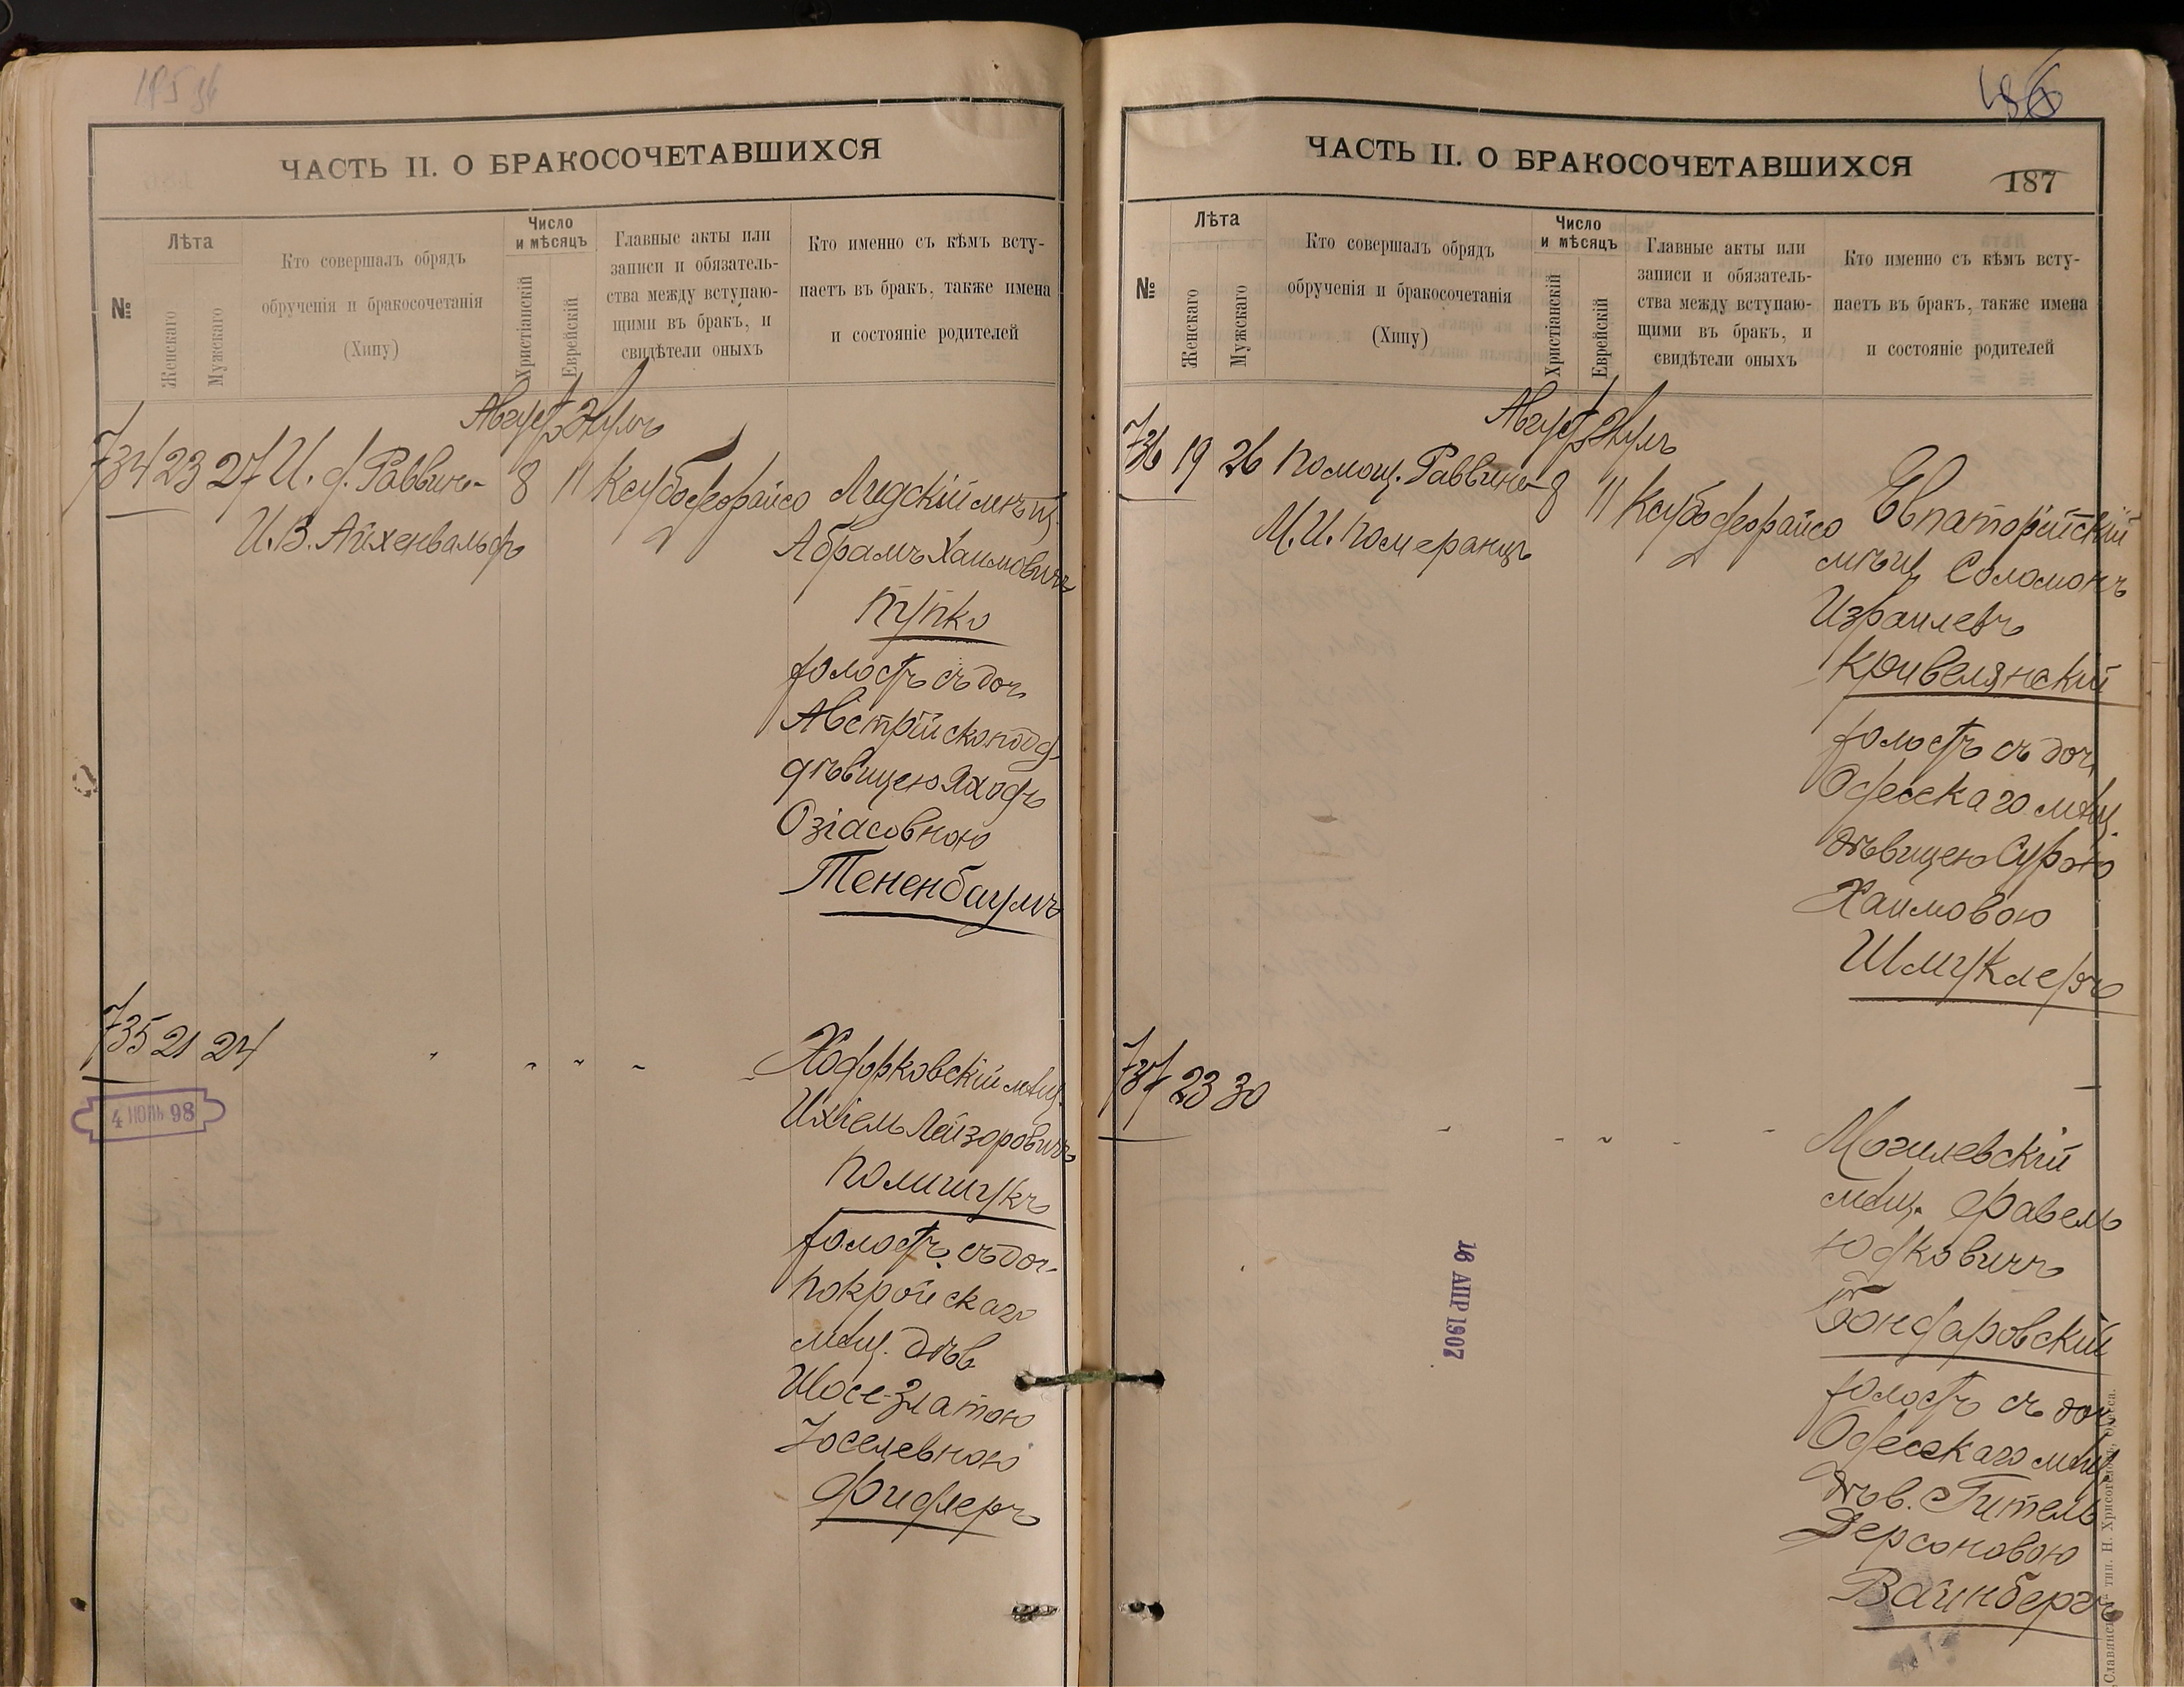 185 96
ЧАСТЬ II. О БРАКОСОЧЕТАВШИХСЯ
№
Лѣта
Женскаго
Мужскаго
Кто совершалъ обрядъ
обрученія и бракосочетанія
(Хипу)
Число
и мѣсяцъ
Христіанскій
Еврейскій
Главные акты или
записи и обязатель-
ства между вступаю-
щими въ бракъ, и
свидѣтели оныхъ
Кто именно съ кѣмъ всту-
паетъ въ бракъ, также имена
и состояніе родителей
Август Элулъ
734 23 27 И. д. Раввин- 8 11 Ксубофеорайсо Лидскій мѣщ.
И.В. Айхенвальдъ Абрамъ Хаимовичъ
Пупко
холостъ съ доч
Австрійско подд.
дѣвицею Яходъ
Озіасовною
Тененбаумъ
735 21 24 Ходорковскій мѣщ.
Ихіель Лейзоровичъ
Полищукъ
холостъ съ доч.
Покройскаго
мѣщ. дѣв
Шосе-Златою
Іоселевною
Фидлеръ
4 ИЮНЬ 98
ЧАСТЬ II. О БРАКОСОЧЕТАВШИХСЯ
187
№
Лѣта
Женскаго
Мужскаго
Кто совершалъ обрядъ
обрученія и бракосочетанія
(Хипу)
Число
и мѣсяцъ
Христіанскій
Еврейскій
Главные акты или
записи и обязатель-
ства между вступаю-
щими въ бракъ, и
свидѣтели оныхъ
Кто именно съ кѣмъ всту-
паетъ въ бракъ, также имена
и состояніе родителей
Август Элулъ
736 19 26 Помощ. Раввина 8 11 Ксубофеорайсо Евпаторійскій
М.И. Померанцъ мѣщ Соломонъ
Израилевъ
Кривелянскій
холостъ съ доч
Одесскаго мѣщ.
дѣвицею Сурою
Хаимовою
Шмуклеръ
737 23 30
Могилевскій
мѣщ. Фавель
Юдковичъ
Бондаровскій
холостъ съ доч
Одесскаго мѣщ
дѣв. Гитель
Герсоновою
Вайнбергъ
16 АПР 1907
Славянская тип. Н. Хрисогелосъ, Одесса.